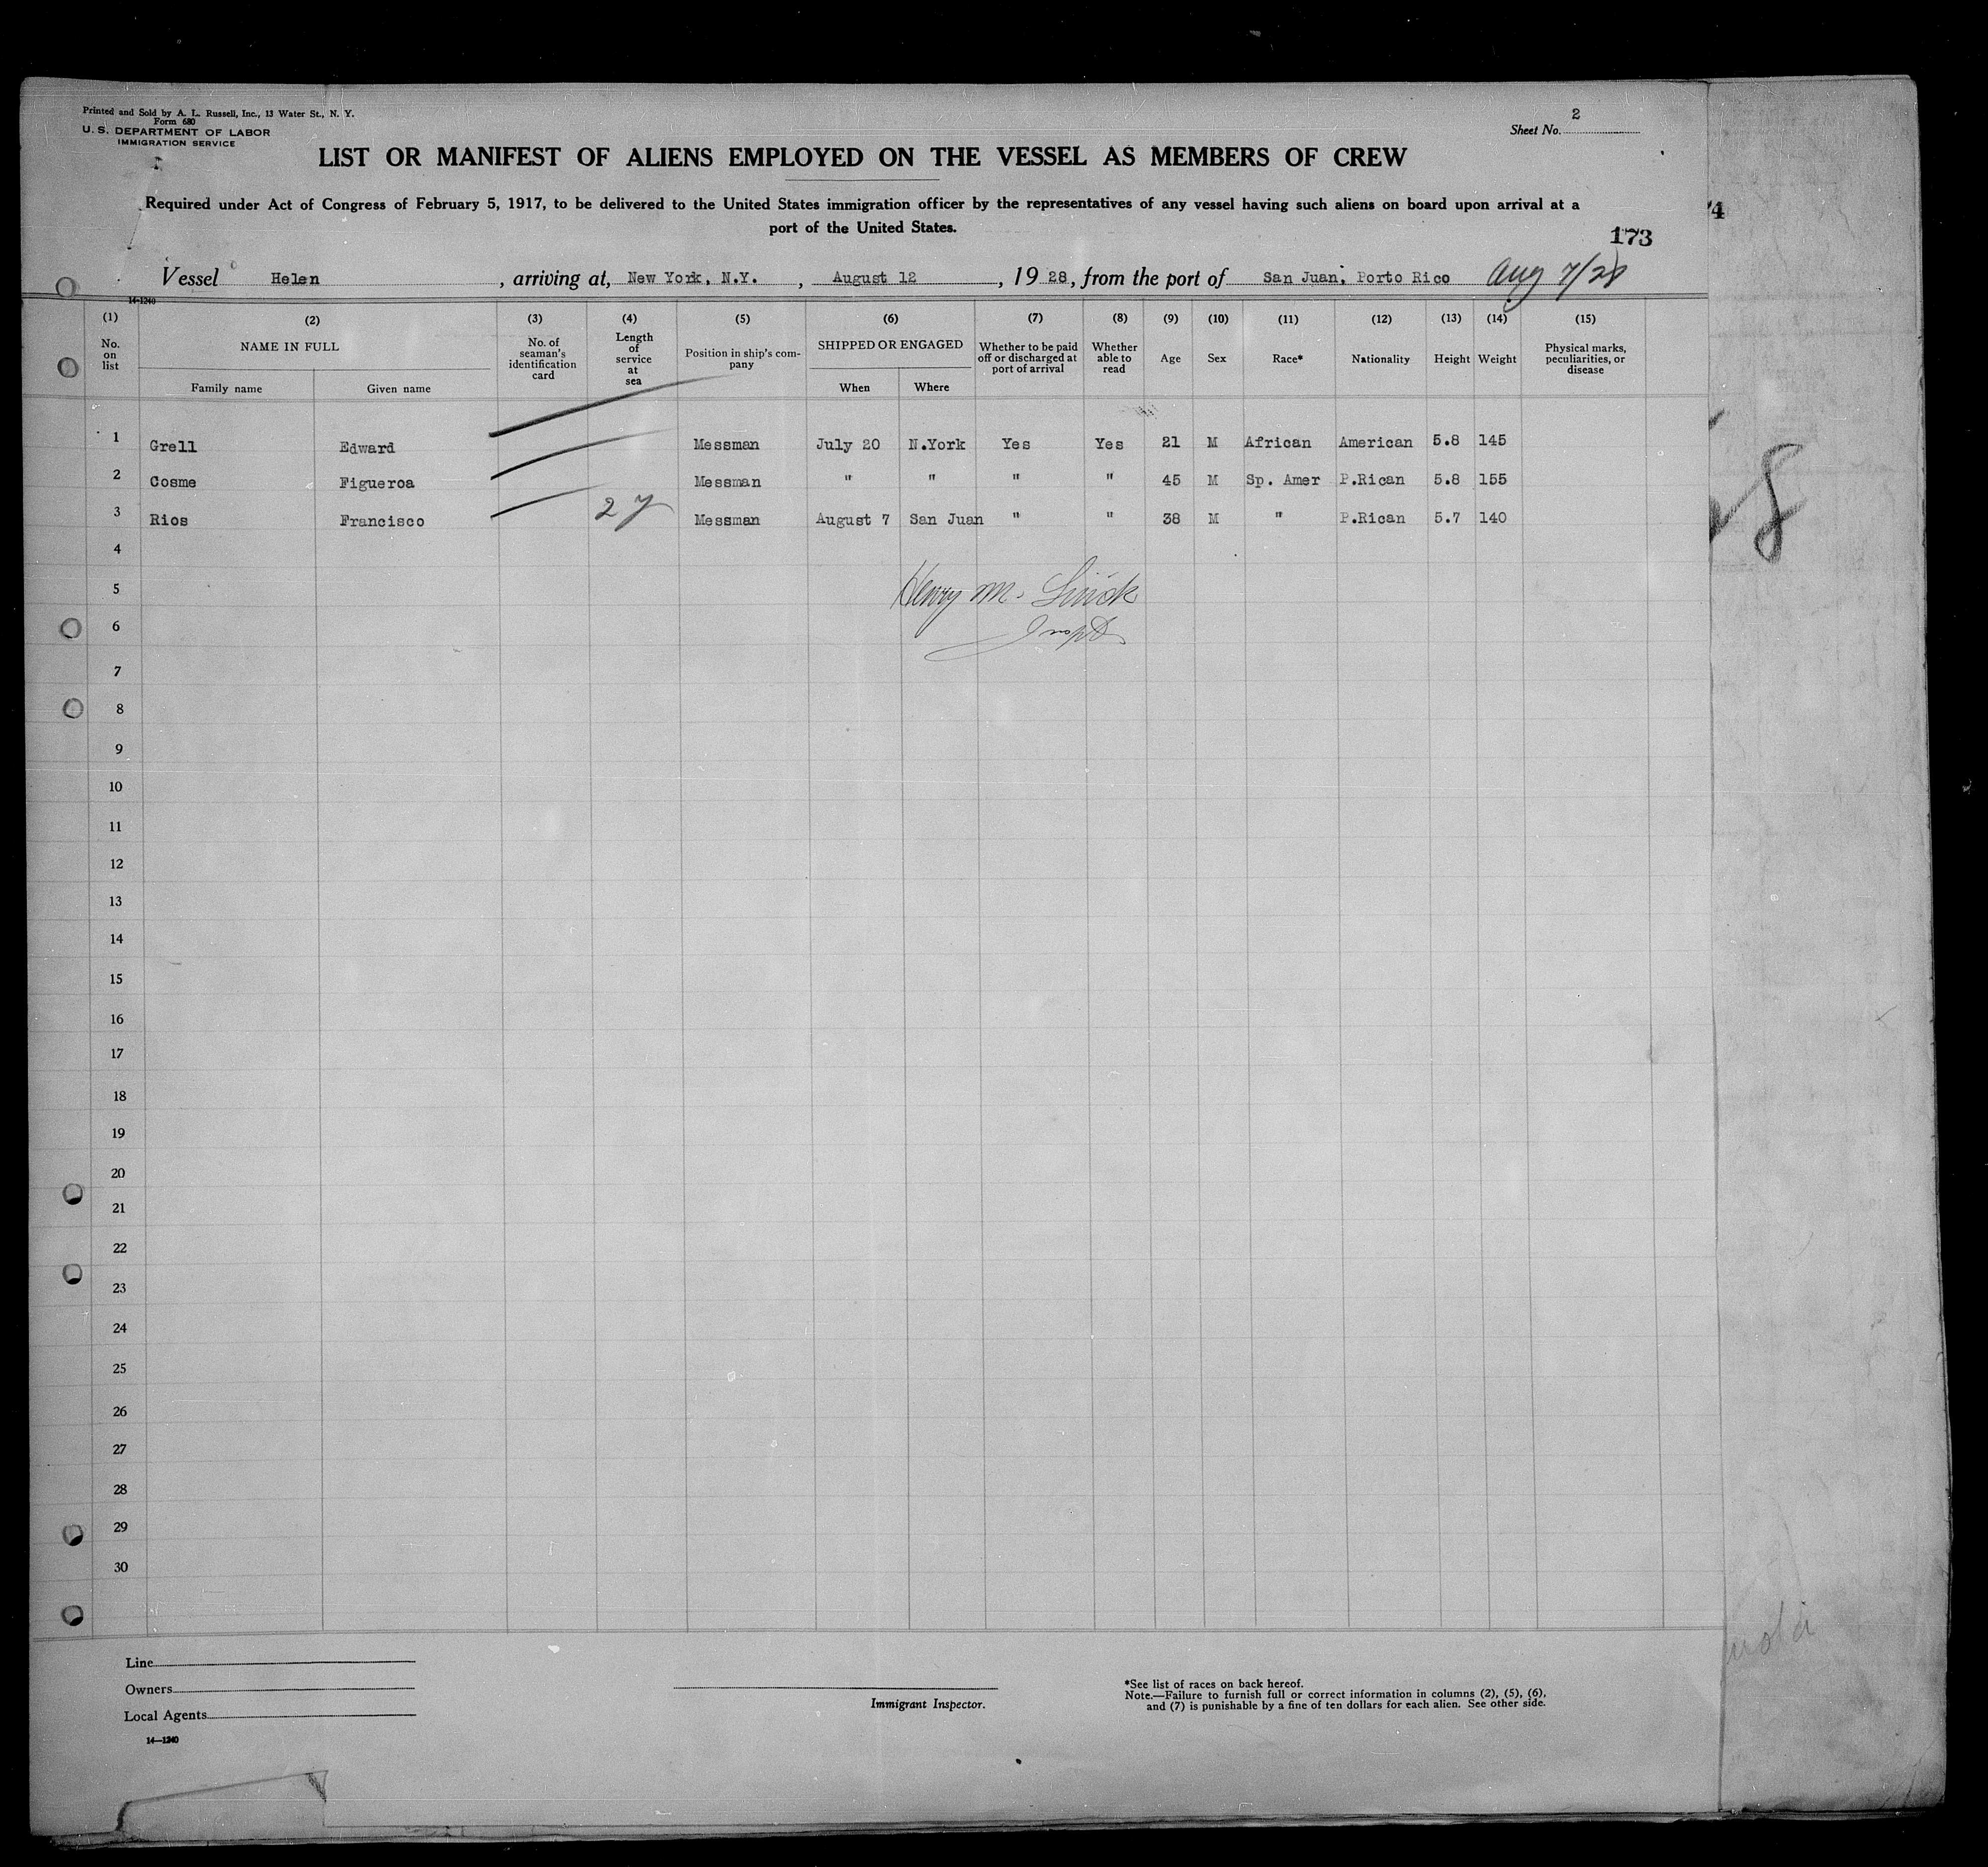 Printed and Sold by A. L. Russell, Inc., 13 Water St., N. Y.
Form 680
U. S. DEPARTMENT OF LABOR
IMMIGRATION SERVICE
2
Sheet No.
LIST OR MANIFEST OF ALIENS EMPLOYED ON THE VESSEL AS MEMBERS OF CREW
Required under Act of Congress of February 5, 1917, to be delivered to the United States immigration officer by the representatives of any vessel having such aliens on board upon arrival at a
port of the United States.
173
Vessel Helen, arriving at, New York, N.Y., August 12, 1928, from the port of San Juan, Porto Rico Aug 7/28
14-1240
(1) (2) (3) (4) (5) (6) (7) (8) (9) (10) (11) (12) (13) (14) (15)
No. on list
NAME IN FULL
Family name
Given name
No. of seaman's identification card
Length of service at sea
Position in ship's company
SHIPPED OR ENGAGED
When
Where
Whether to be paid off or discharged at port of arrival
Whether able to read
Age
Sex
Race*
Nationality
Height
Weight
Physical marks, peculiarities, or disease
1 Grell Edward Messman July 20 N.York Yes Yes 21 M African American 5.8 145
2 Cosme Figueroa Messman " " " " 45 M Sp. Amer P.Rican 5.8 155
3 Rios Francisco 2 y Messman August 7 San Juan " " 38 M " P.Rican 5.7 140
4
5
Henry M.
6
Inspt
7
8
9
10
11
12
13
14
15
16
17
18
19
20
21
22
23
24
25
26
27
28
29
30
Line
Owners
Local Agents
14—1240
Immigrant Inspector.
*See list of races on back hereof.
Note.—Failure to furnish full or correct information in columns (2), (5), (6),
and (7) is punishable by a fine of ten dollars for each alien. See other side.